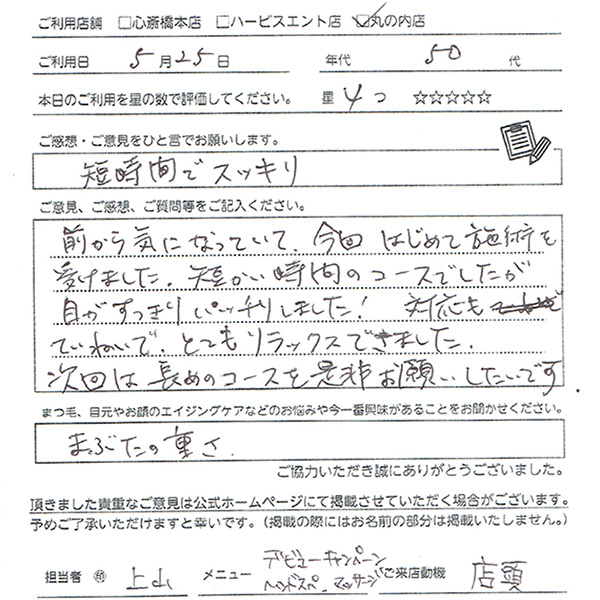 ご利用店舗 □心斎橋本店 □ハービスエント店 ☑丸の内店
ご利用日 5月25日 年代 50代
本日のご利用を星の数で評価してください。 星 4つ ☆☆☆☆☆
ご感想・ご意見をひと言でお願いします。
短時間でスッキリ
ご意見、ご感想、ご質問等をご記入ください。
前から気になっていて、今回はじめて施術を
受けました。短かい時間のコースでしたが
目がすっきりパッチリしました! 対応も
ていねいで、とてもリラックスできました。
次回は長めのコースを是非お願いしたいです
まつ毛、目元やお顔のエイジングケアなどのお悩みや今一番興味があることをお聞かせください。
まぶたの重さ
ご協力いただき誠にありがとうございました。
頂きました貴重なご意見は公式ホームページにて掲載させていただく場合がございます。
予めご了承いただけますと幸いです。(掲載の際にはお名前の部分は掲載いたしません。)
担当者 ㊞ 上山 メニュー デビューキャンペーン ヘッドスパ、マッサージ ご来店動機 店頭